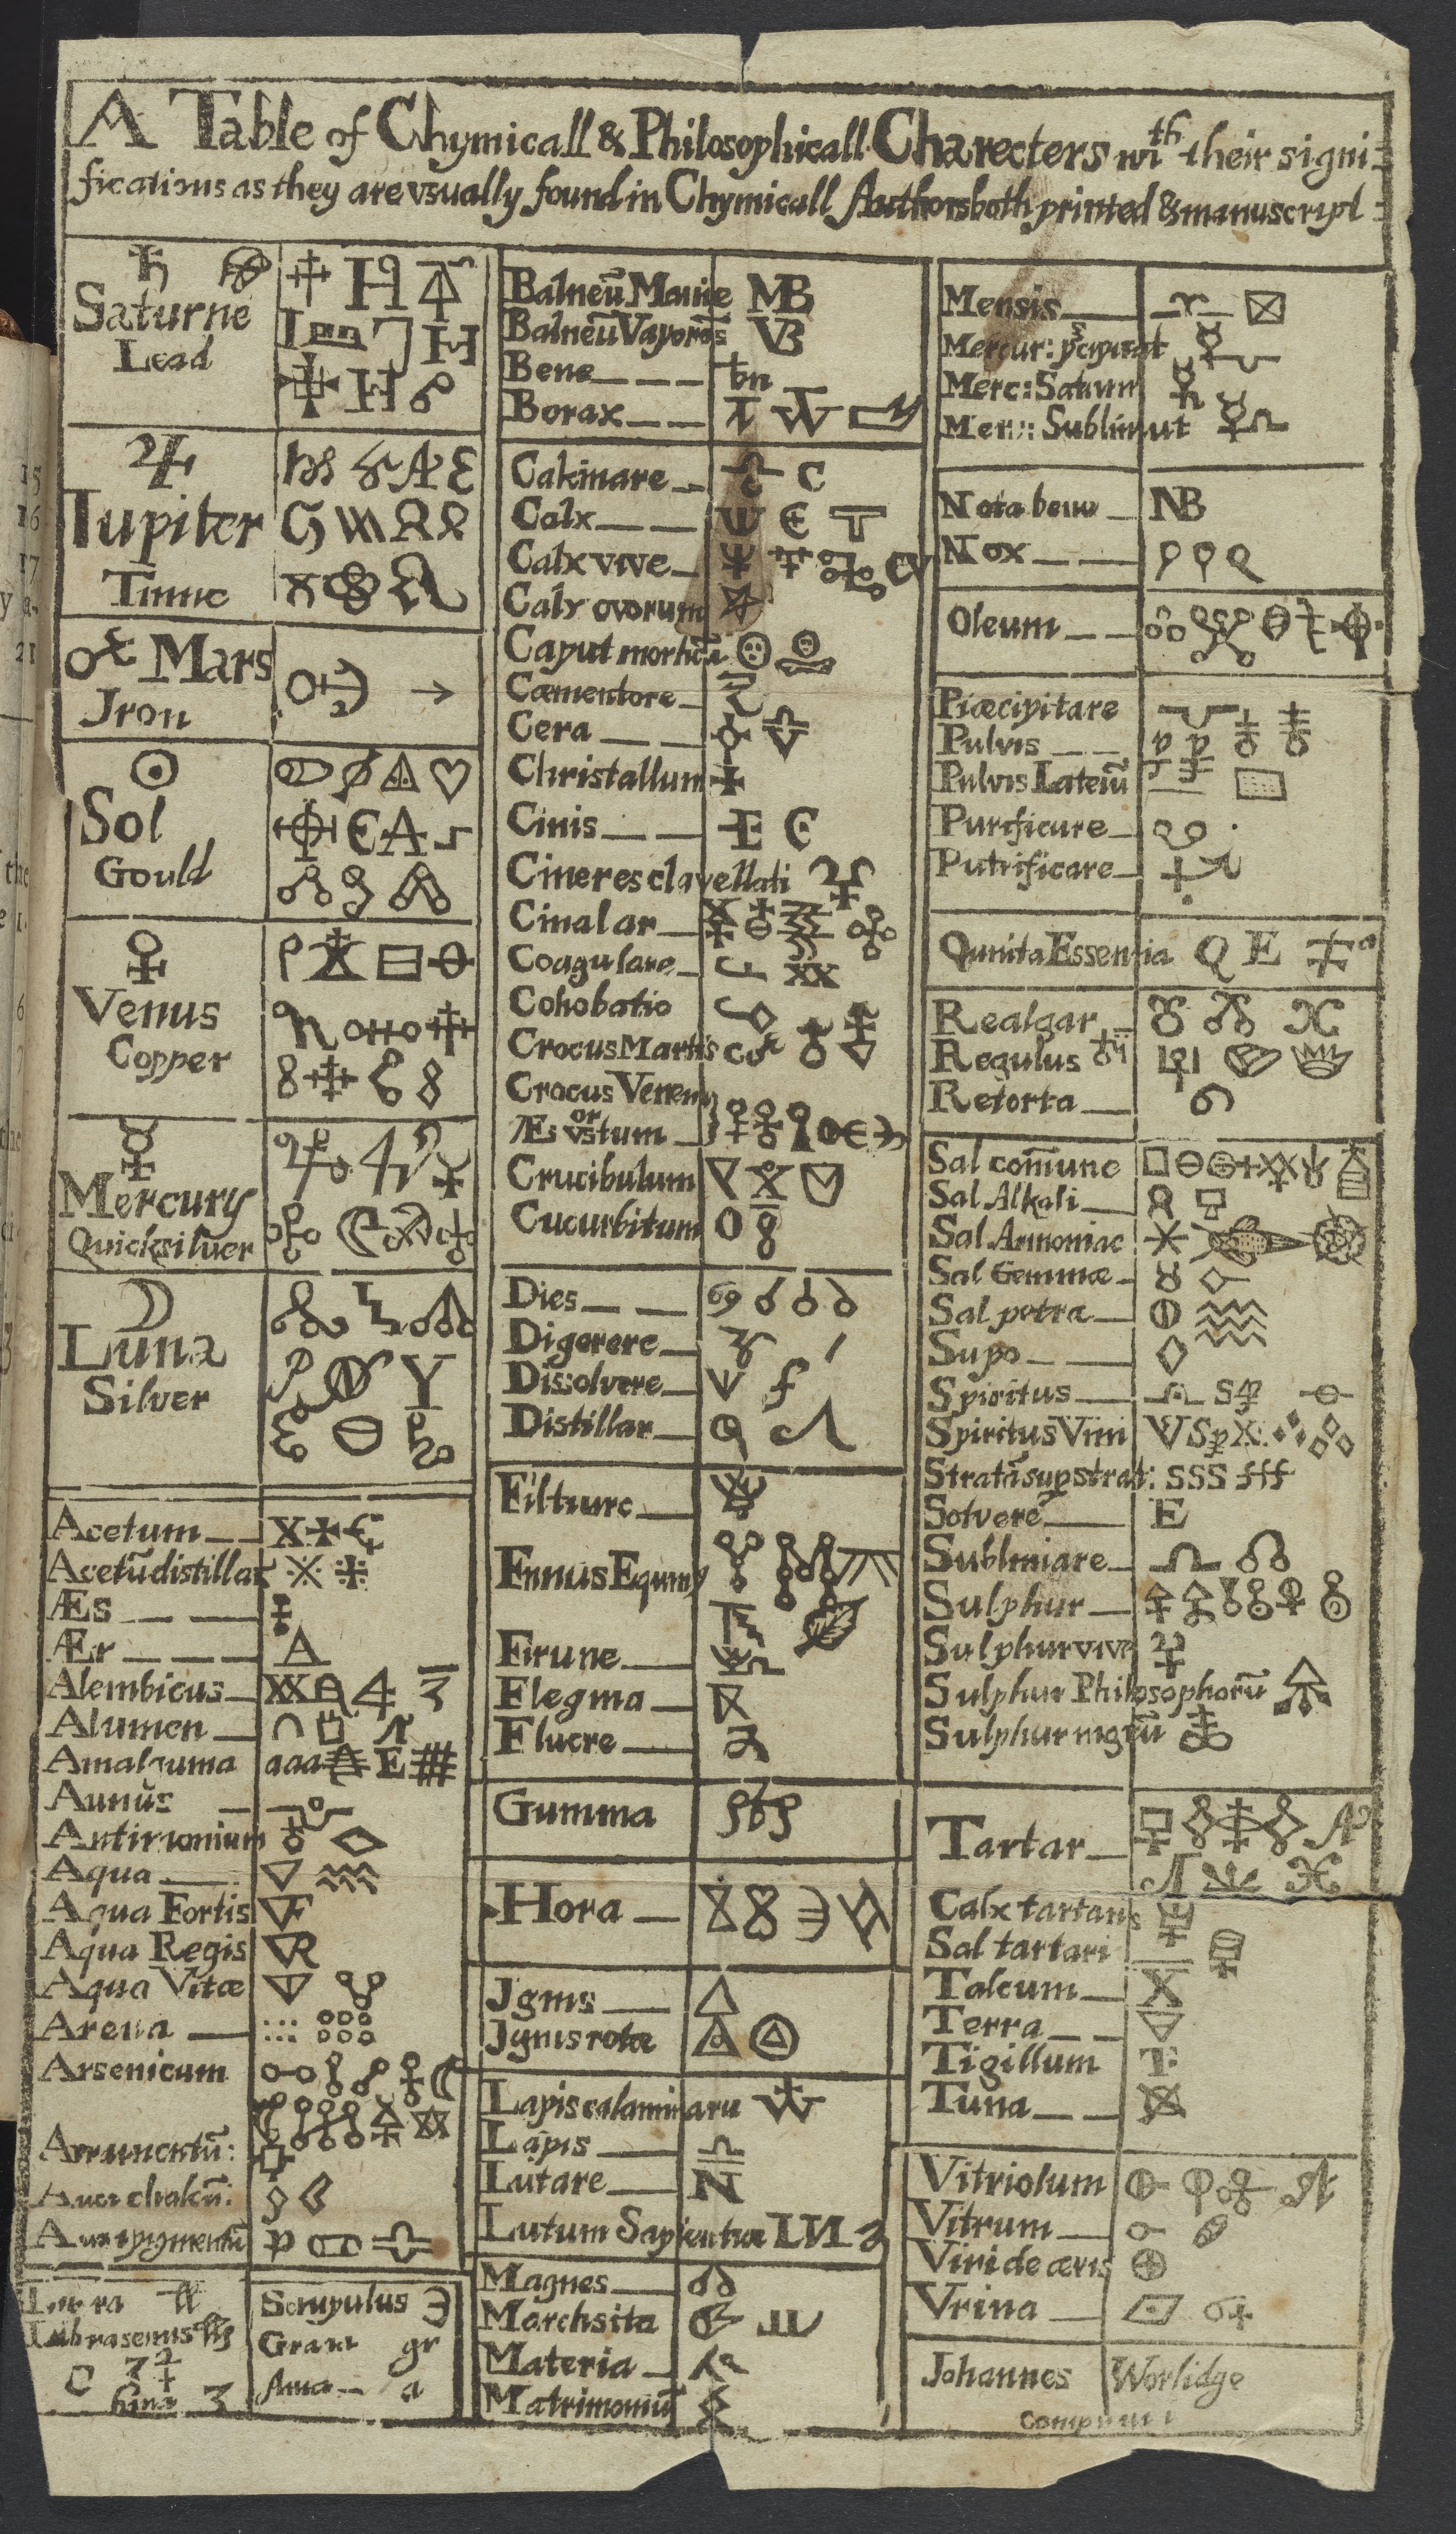 A Table of Chymicall & Philosophicall Charecters wth their signi=
fications as they are vsually found in Chymicall Authors both printed & manuscript
Saturne
Lead
Iupiter
Tinne
Mars
Jron
Sol
Gould
Venus
Copper
Mercury
Quicksilver
Luna
Silver
Acetum
Acetū distillat
Æs
Ær
Alembicus
Alumen
Amalgama
Annŭs
Antimonium
Aqua
Aqua Fortis
Aqua Regis
Aqua Vitæ
Arena
Arsenicum
Libra
Libra semis
Scrupulus
Gran gr
Ana a
Balneū Marie MB
Balneū Vaporis VB
Bene bn
Borax
Calcinare C
Calx
Calx vive CV
Calx ovorum
Caput mortuū
Cæmentore
Cera
Christallum
Cinis
Cineres clavellati
Cinabar
Coagulare
Cohobatio
Crocus Martis
Crocus Veneris
or
Æs vstum
Crucibulum
Cucurbitum
Dies
Digerere
Dissolvere
Distillar
Filtrare
Fimus Equiny
Flegma
Fluere
Gumma
Hora
Jgnis
Jgnis rotæ
Lapis calaminaru
Lapis
Lutare
Lutum Sapientiæ
Magnes
Marchsita
Materia
Matrimoniū
Mensis
Mercur: pcipitat
Merc: Saturn
Merc: Sublimat
Nota bene NB
Nox
Oleum
Præcipitare
Pulvis
Pulvis Lateriū
Purificare
Putrificare
Quinta Essentia QE
Realgar
Regulus
Retorta
Sal comūne
Sal Alkali
Sal Armoniac
Sal Gemmæ
Sal petra
Sapo
Spiritus
Spiritus Vini
Stratū sup strat: SSS fff
Solvere E
Sublimare
Sulphur
Sulphur vive
Sulphur Philosophorū
Sulphur nigrū
Tartar
Calx tartaris
Sal tartari
Talcum
Terra
Tigillum
Vitriolum
Vitrum
Viride æris
Vrina
Johannes Worlidge